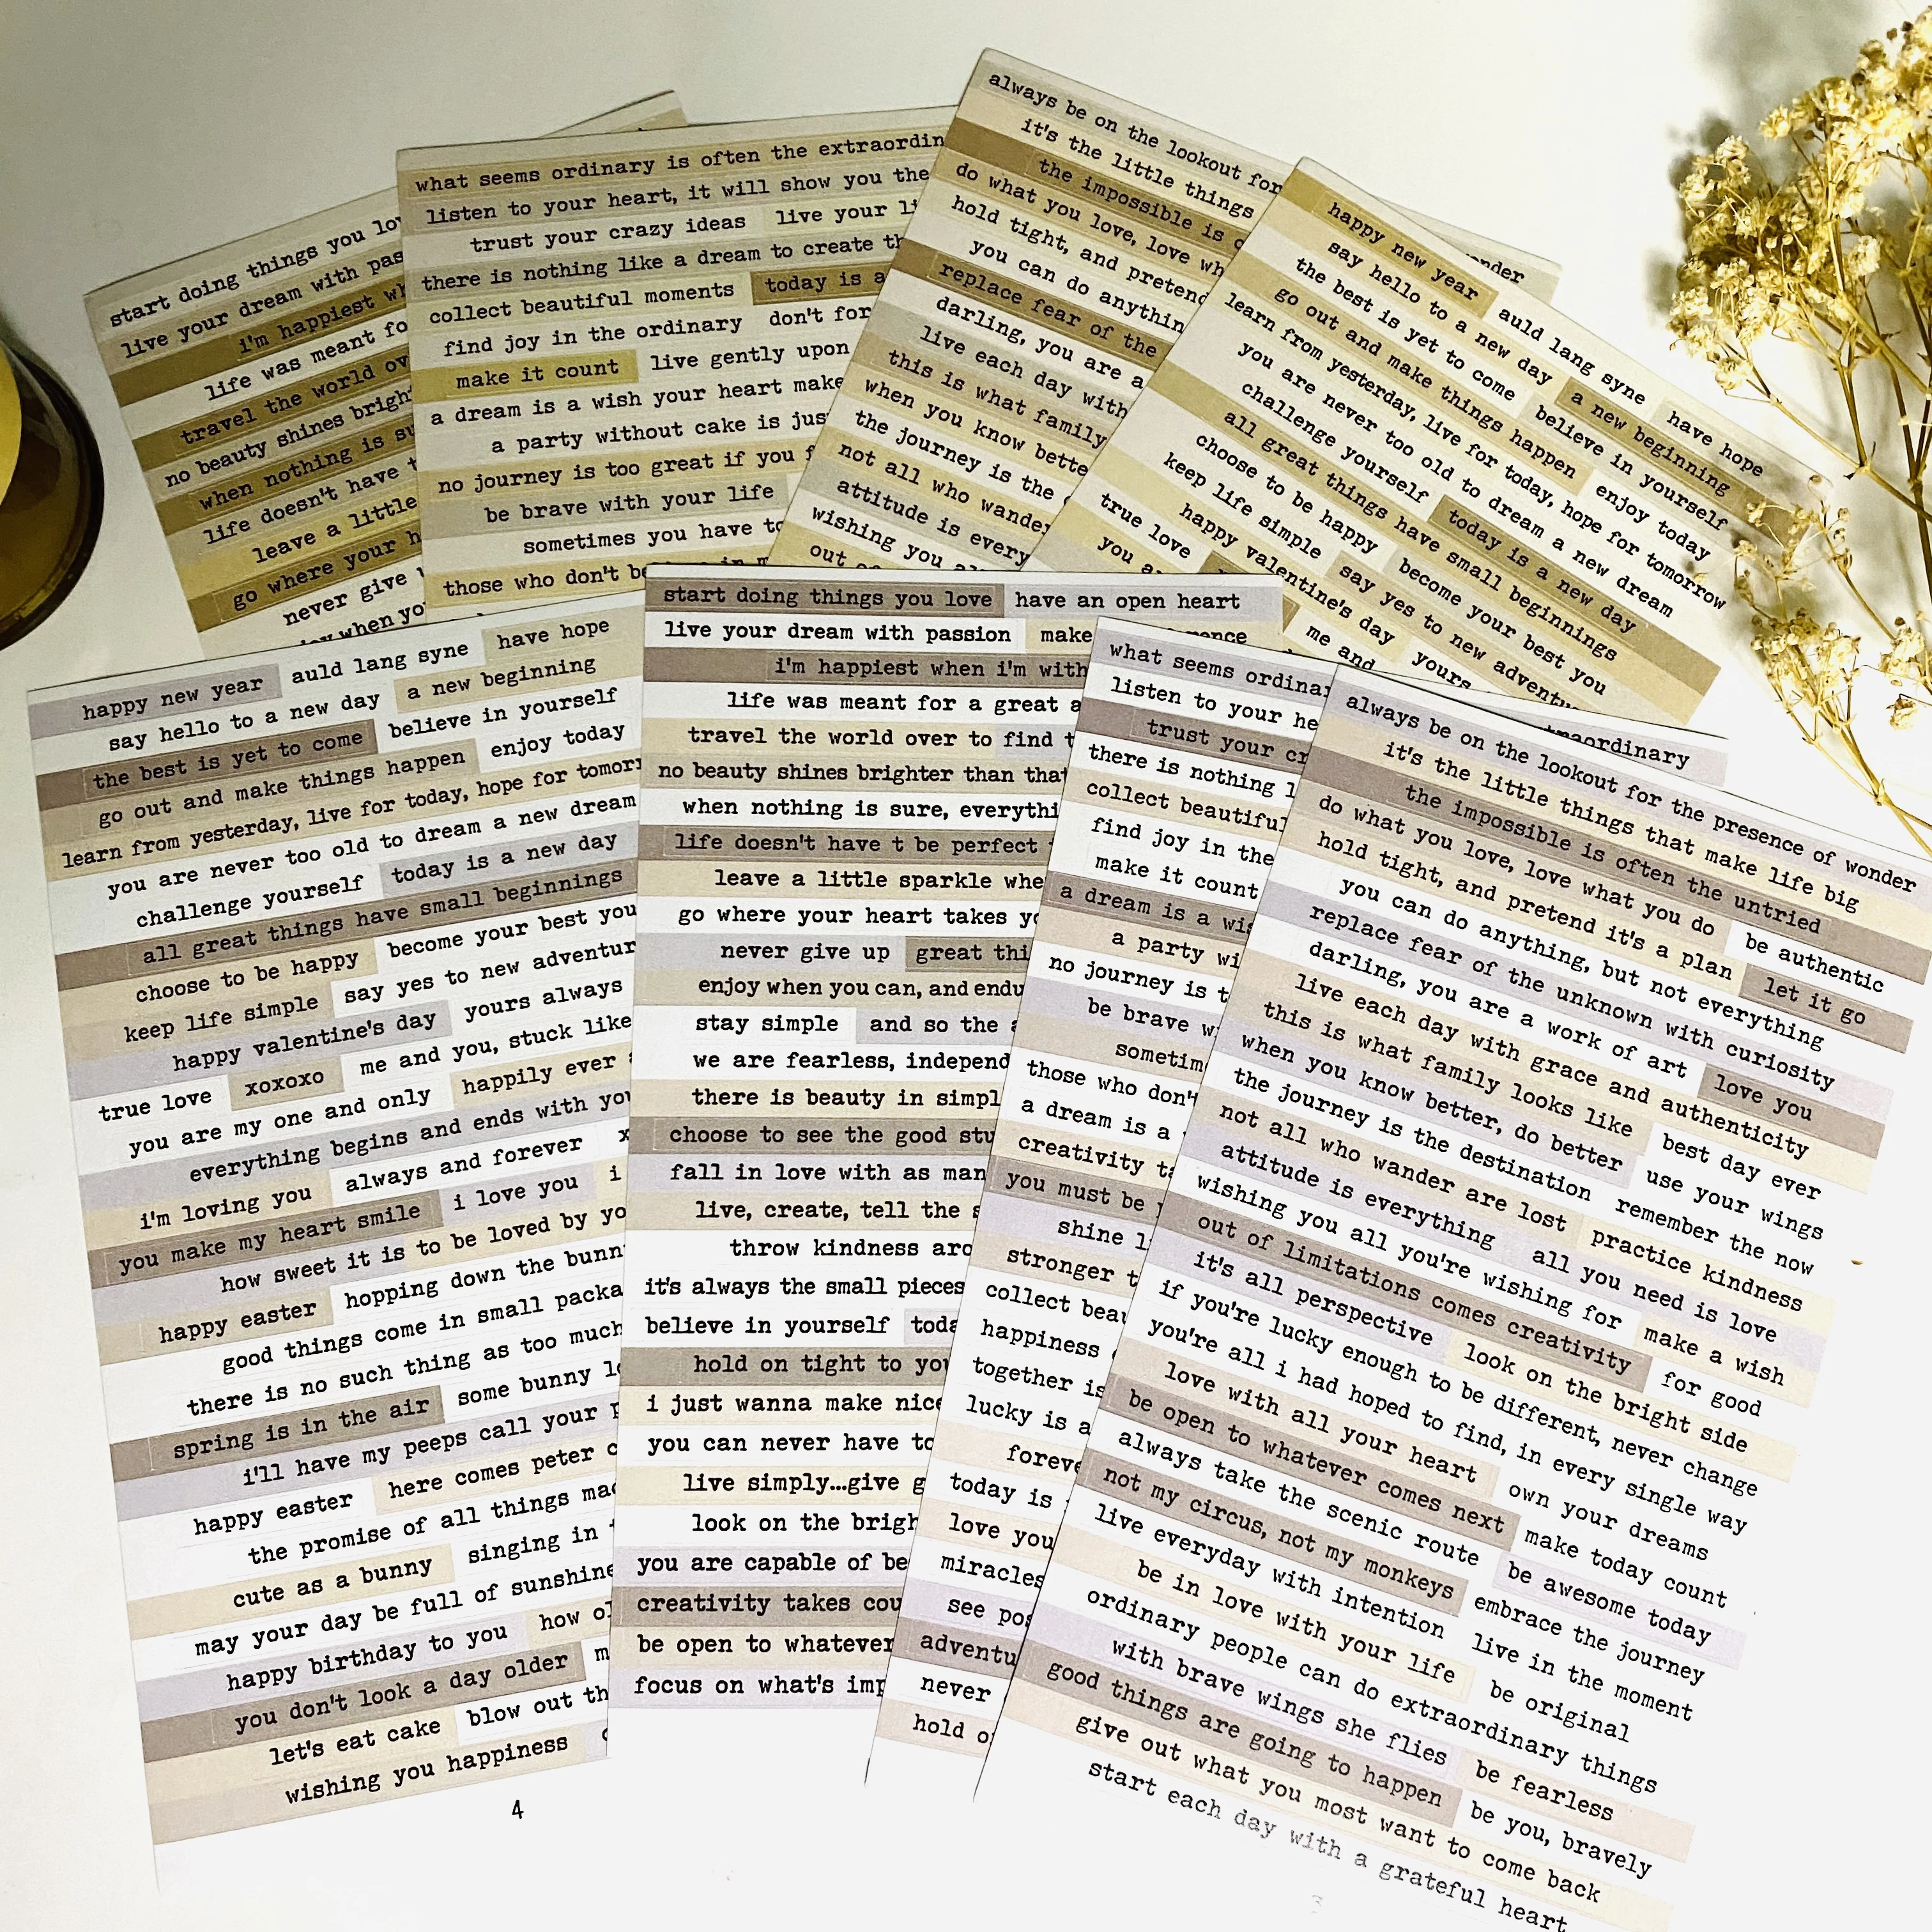 start doing things you
live your dream with
i'm happiest
life was meant
travel the world
no beauty shines
when nothing is
life doesn't have
leave a little
go where your
never give
when
what seems ordinary is often the
listen to your heart, it will show you the
trust your crazy ideas live your
there is nothing like a dream to create
collect beautiful moments today is a
find joy in the ordinary don't
make it count live gently upon
a dream is a wish your heart
a party without cake is
no journey is too great if you
be brave with your life
sometimes you have
those who don't
always be on the lookout for
it's the little things
the impossible is
do what you love, love
hold tight, and pretend
you can do
replace fear of the
darling, you are a
live each day with
this is what family
when you know
the journey is the
not all who
attitude is
wishing you
out
wonder
happy new year auld lang syne have hope
say hello to a new day a new beginning
the best is yet to come believe in yourself
go out and make things happen enjoy today
learn from yesterday, live for today, hope for tomorrow
you are never too old to dream a new dream
challenge yourself today is a new day
all great things have small beginnings
choose to be happy become your best you
keep life simple say yes to new
happy valentine's day yours
true love me and
you
happy new year auld lang syne have hope
say hello to a new day a new beginning
the best is yet to come believe in yourself
go out and make things happen enjoy today
learn from yesterday, live for today, hope for
you are never too old to dream a new dream
challenge yourself today is a new day
all great things have small beginnings
choose to be happy become your best you
keep life simple say yes to new
happy valentine's day yours always
true love xoxoxo me and you, stuck like
you are my one and only happily ever
everything begins and ends with
i'm loving you always and forever
you make my heart smile i love you i
how sweet it is to be loved by
happy easter hopping down the
good things come in small
there is no such thing as too much
spring is in the air some bunny
i'll have my peeps call your
happy easter here comes peter
the promise of all things
cute as a bunny singing in
may your day be full of sunshine
happy birthday to you how
you don't look a day older
let's eat cake blow out
wishing you happiness
4
start doing things you love have an open heart
live your dream with passion make
i'm happiest when i'm with
life was meant for a great
travel the world over to find
no beauty shines brighter than
when nothing is sure,
life doesn't have t be perfect
leave a little sparkle
go where your heart takes
never give up great
enjoy when you can, and
stay simple and so the
we are fearless,
there is beauty in
choose to see the good
fall in love with as
live, create, tell the
throw kindness
it's always the small pieces
believe in yourself
hold on tight to
i just wanna make
you can never have
live simply...give
look on the
you are capable of
creativity takes
be open to whatever
focus on what's
what seems
listen to your
trust your
there is nothing
collect
find joy in the
make it count
a dream is a
a party
no journey is
be brave
those who don't
a dream is a
creativity
you must be
shine
stronger
collect
happiness
together is
lucky is a
today is
love you
miracles
see
never
hold
extraordinary
always be on the lookout for the presence of wonder
it's the little things that make life big
the impossible is often the untried
do what you love, love what you do be authentic
hold tight, and pretend it's a plan let it go
you can do anything, but not everything
replace fear of the unknown with curiosity
darling, you are a work of art love you
live each day with grace and authenticity
this is what family looks like best day ever
when you know better, do better use your wings
the journey is the destination remember the now
not all who wander are lost practice kindness
attitude is everything all you need is love
wishing you all you're wishing for make a wish
out of limitations comes creativity for good
it's all perspective look on the bright side
if you're lucky enough to be different, never change
you're all i had hoped to find, in every single way
love with all your heart own your dreams
be open to whatever comes next make today count
always take the scenic route be awesome today
not my circus, not my monkeys embrace the journey
live everyday with intention live in the moment
be in love with your life be original
ordinary people can do extraordinary things
with brave wings she flies be fearless
good things are going to happen be you, bravely
give out what you most want to come back
start each day with a grateful heart
3